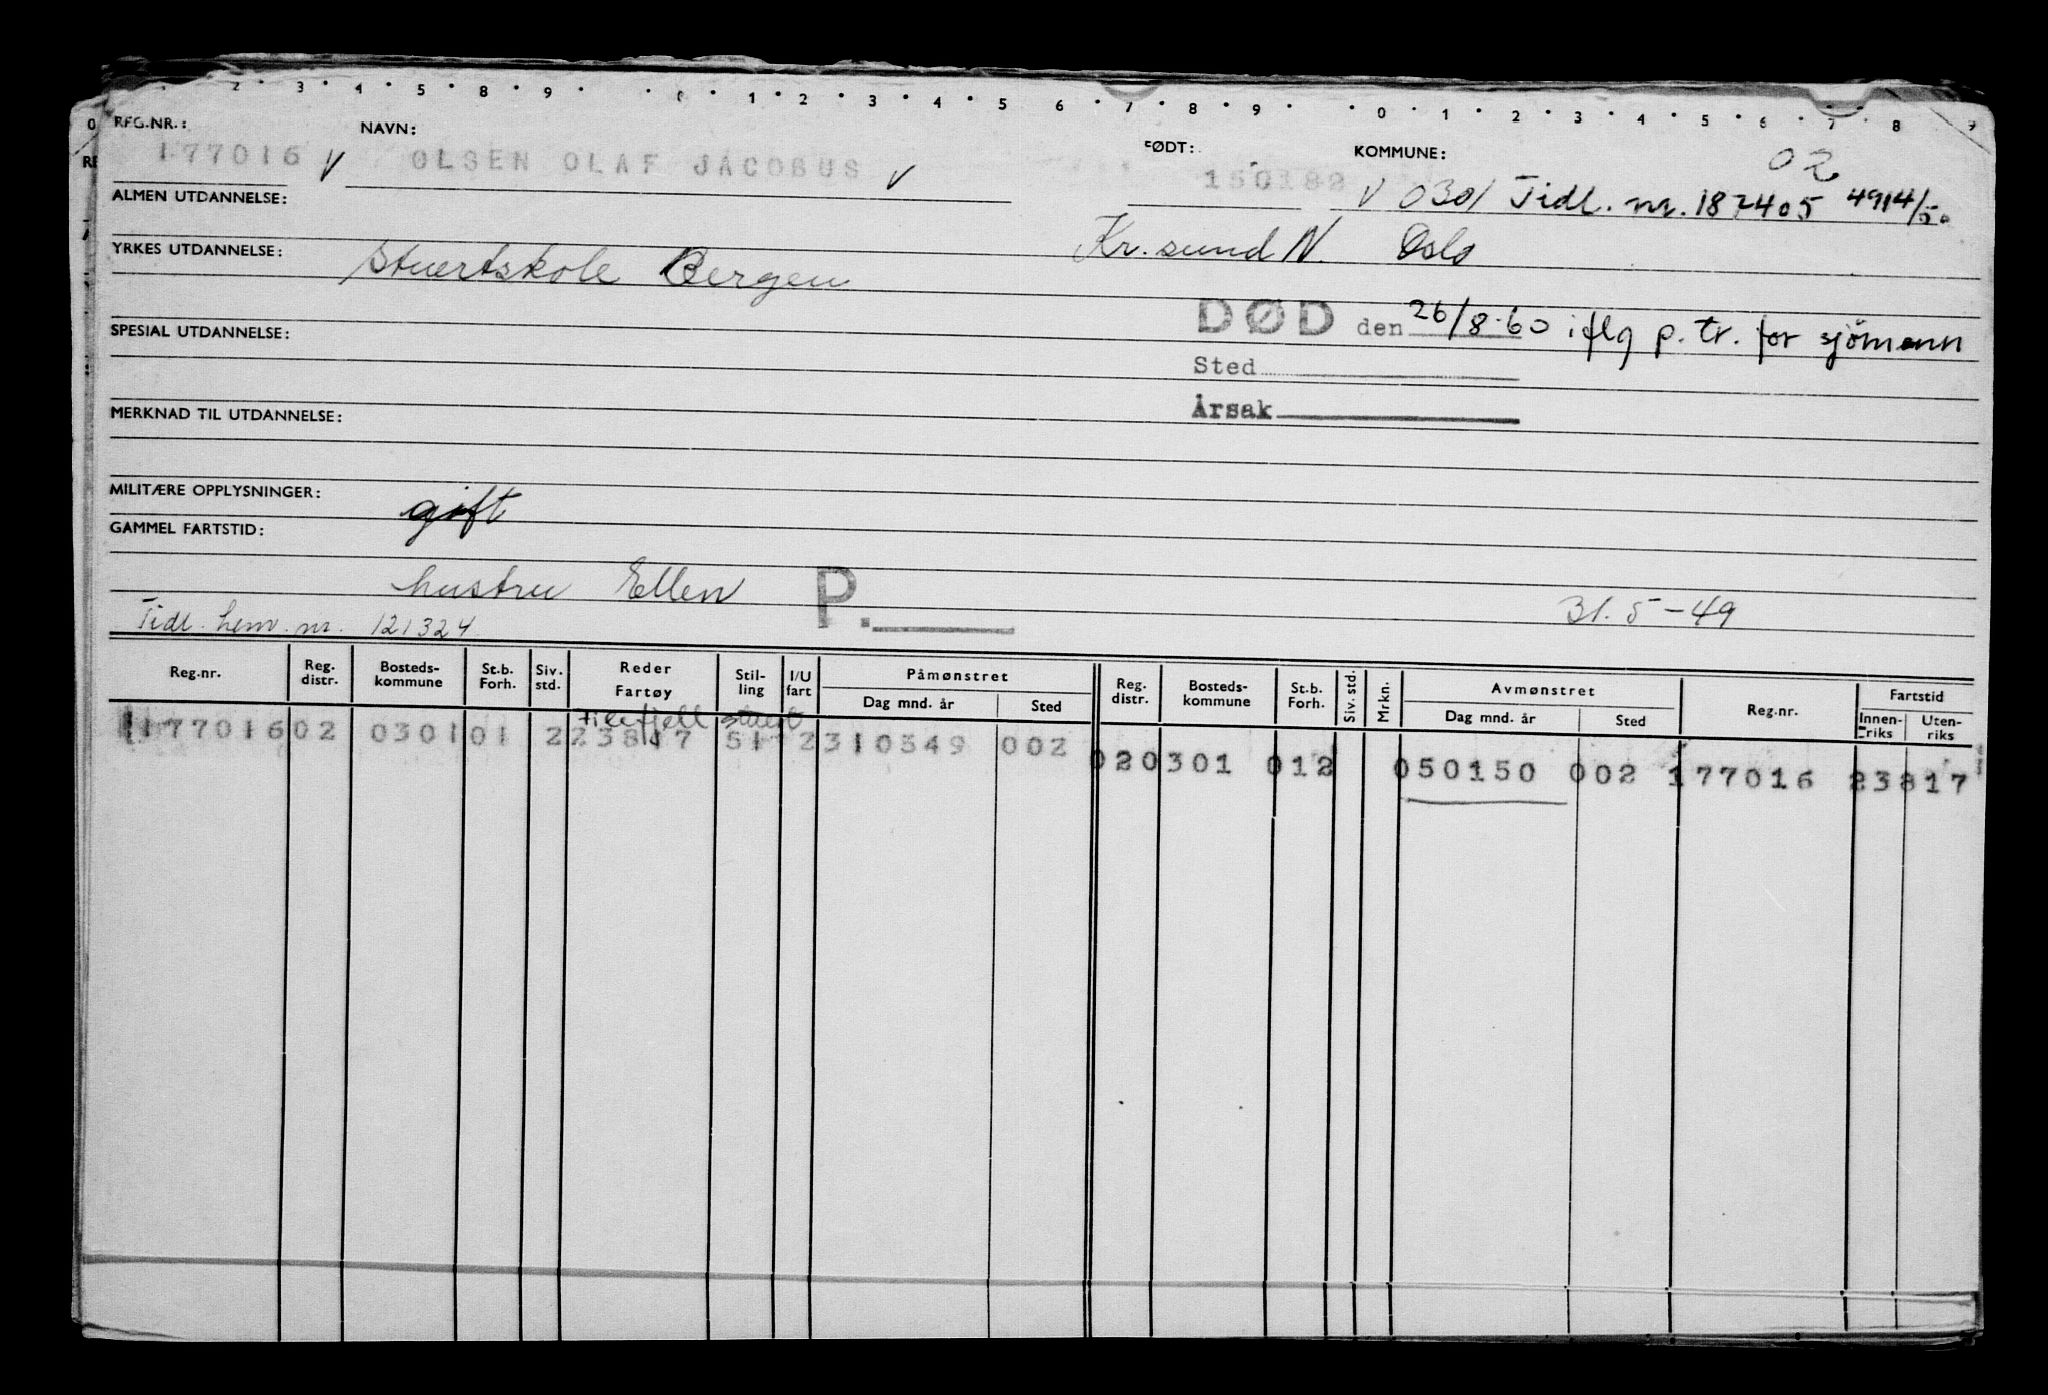 2 3 4 5 8 9 1 2 3 4 5 6 7 8 9 0 1 2 3 4 5 6 7 8 9
0 REG.NR.: NAVN: FØDT: KOMMUNE: 02
177016 V OLSEN OLAF JACOBUS V 150182 V 0301 Tidl. nr. 187405 4914/50
ALMEN UTDANNELSE:
Kr.sund N. Oslo
YRKES UTDANNELSE: Stuertskole Bergen
DØD den 26/8-60 iflg p. tr. for sjömenn
SPESIAL UTDANNELSE:
Sted
Årsak
MERKNAD TIL UTDANNELSE:
MILITÆRE OPPLYSNINGER: gift
GAMMEL FARTSTID:
hustru Ellen P. 31.5-49
Tidl. hem. nr. 121324
Reg.nr. Reg. distr. Bosteds-kommune St.b. Forh. Siv. std. Reder Fartøy Stil-ling I/U fart Påmønstret Dag mnd. år Sted Reg. distr. Bosteds-kommune St.b. Forh. Siv. std. Mrkn. Avmønstret Dag mnd. år Sted Reg.nr. Fartstid Innen-riks Uten-riks
Filefjell stuert
177016 02 0301 01 2 23817 51 2 310549 002
02 0301 012 050150 002 177016 23817